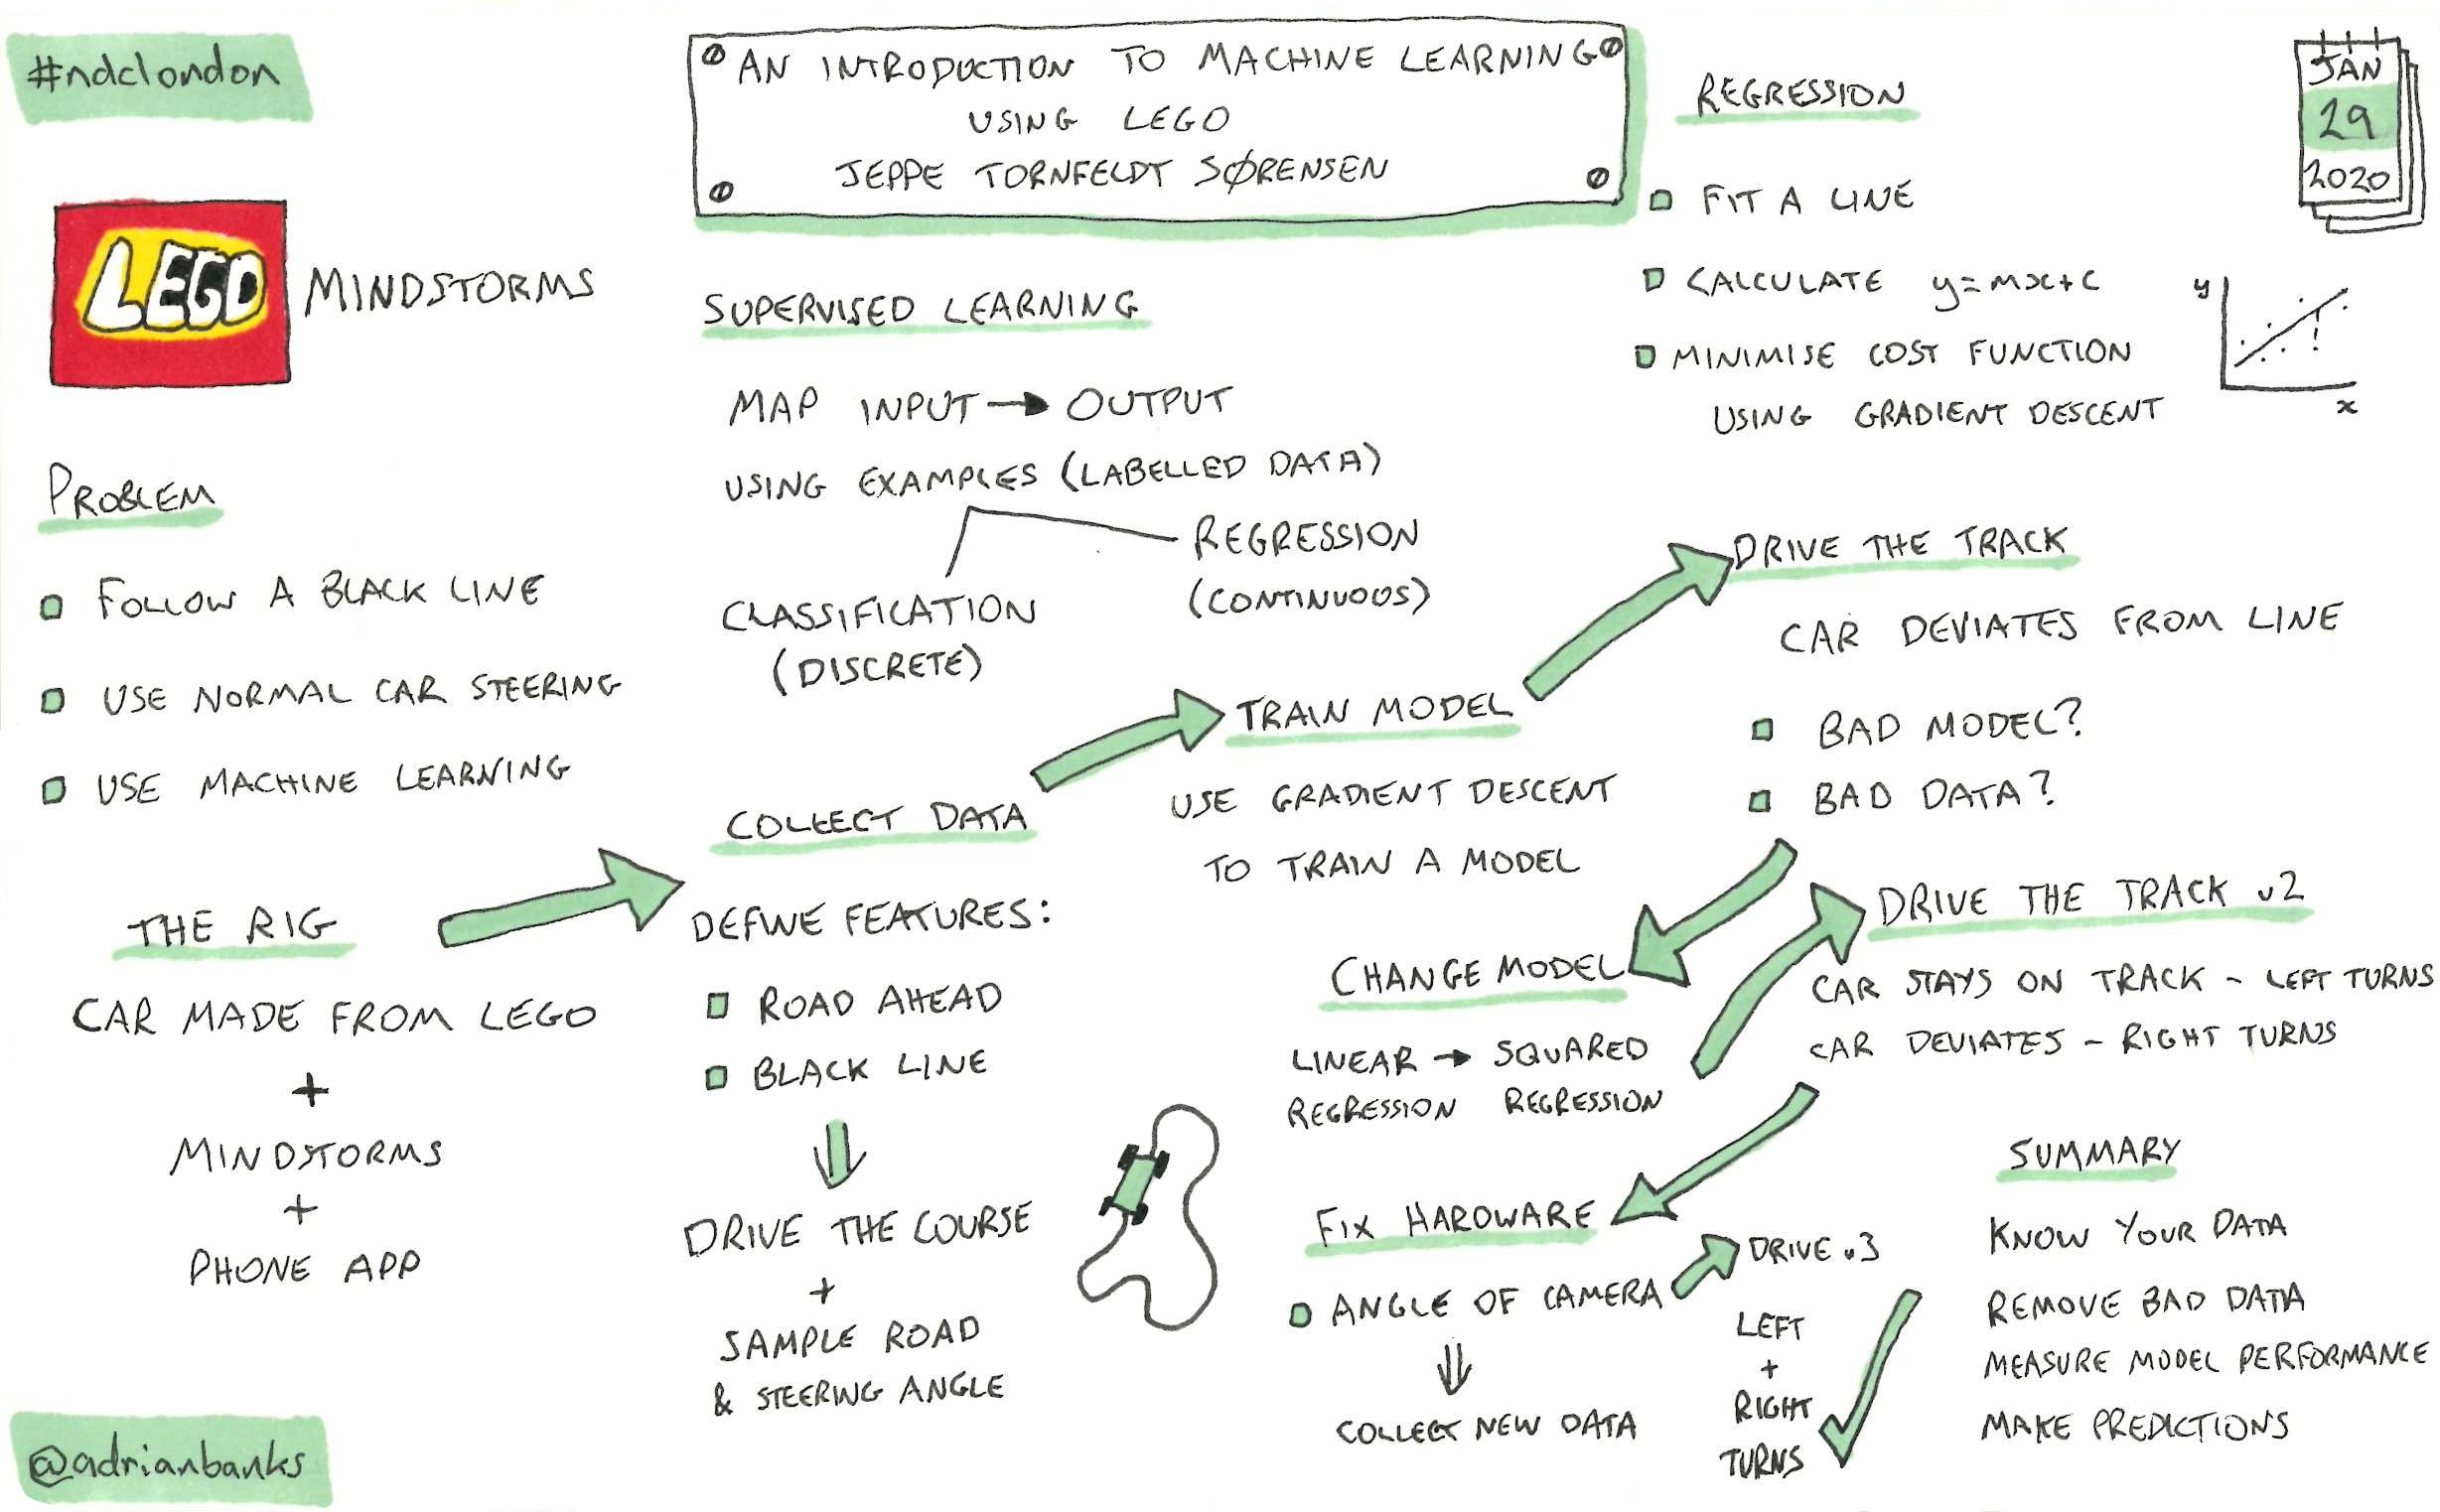 #ndclondon
AN INTRODUCTION TO MACHINE LEARNING
USING LEGO
JEPPE TORNFELDT SØRENSEN
JAN
29
2020
LEGO
MINDSTORMS
PROBLEM
FOLLOW A BLACK LINE
USE NORMAL CAR STEERING
USE MACHINE LEARNING
SUPERVISED LEARNING
MAP INPUT → OUTPUT
USING EXAMPLES (LABELLED DATA)
CLASSIFICATION
(DISCRETE)
REGRESSION
(CONTINUOUS)
REGRESSION
FIT A LINE
CALCULATE y=mx+c
MINIMISE COST FUNCTION
USING GRADIENT DESCENT
y
x
THE RIG
CAR MADE FROM LEGO
+
MINDSTORMS
+
PHONE APP
COLLECT DATA
DEFINE FEATURES:
ROAD AHEAD
BLACK LINE
DRIVE THE COURSE
+
SAMPLE ROAD
& STEERING ANGLE
TRAIN MODEL
USE GRADIENT DESCENT
TO TRAIN A MODEL
DRIVE THE TRACK
CAR DEVIATES FROM LINE
BAD MODEL?
BAD DATA?
CHANGE MODEL
LINEAR → SQUARED
REGRESSION REGRESSION
DRIVE THE TRACK v2
CAR STAYS ON TRACK - LEFT TURNS
CAR DEVIATES - RIGHT TURNS
FIX HARDWARE
ANGLE OF CAMERA
COLLECT NEW DATA
DRIVE v3
LEFT
+
RIGHT
TURNS
SUMMARY
KNOW YOUR DATA
REMOVE BAD DATA
MEASURE MODEL PERFORMANCE
MAKE PREDICTIONS
@adrianbanks